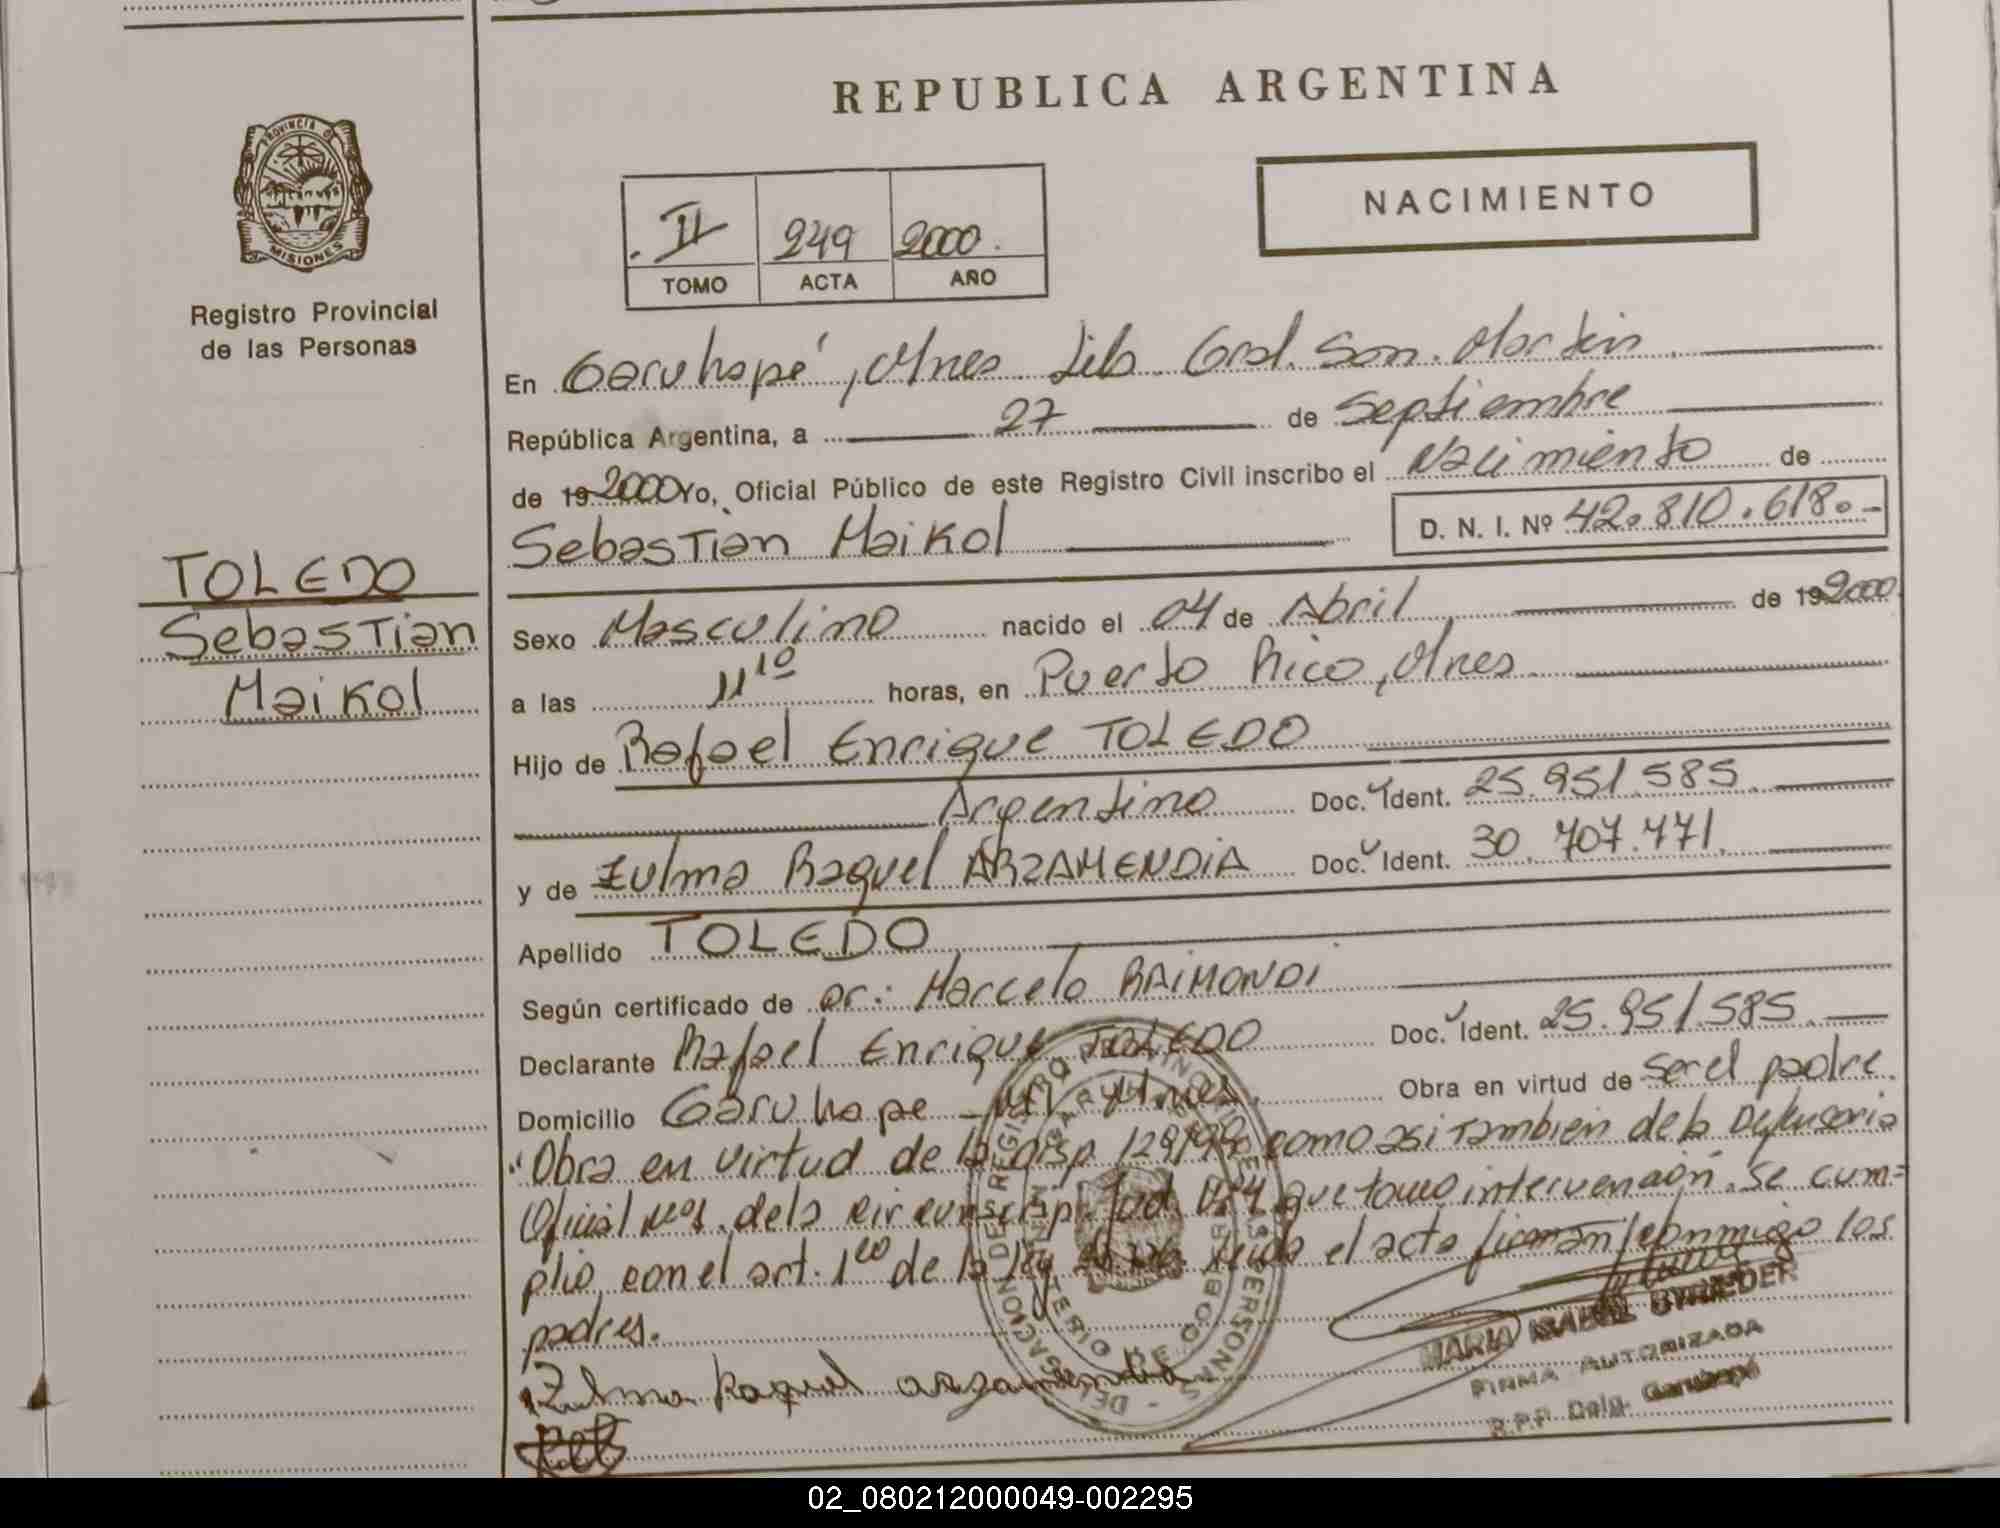 REPUBLICA ARGENTINA
NACIMIENTO
PROVINCIA DE
MISIONES
Registro Provincial
de las Personas
II 249 2000.
TOMO ACTA AÑO
En Garuhapé, Mnes Lib. Gral. San. Martin
República Argentina, a 27 de Septiembre
de 19 2000 Yo, Oficial Público de este Registro Civil inscribo el Nacimiento de
Sebastián Maikol D. N. I. Nº 42.810.618.-
TOLEDO
Sebastian
Maikol
Sexo Masculino nacido el 04 de Abril de 19 2000
a las 11 10 horas, en Puerto Rico, Mnes
Hijo de Rafael Enrique TOLEDO
Argentino Doc. Ident. 25.951.585
y de Zulma Raquel ARZAMENDIA Doc. Ident. 30.707.471.
Apellido TOLEDO
Según certificado de Dr: Marcelo RAIMONDI
Declarante Rafael Enrique TOLEDO Doc. Ident. 25.951.585
Domicilio Garuhape Mnes. Obra en virtud de ser el padre.
"Obra en virtud de la disp 129/99 como asi tambien de la Defensoria
Oficial Nº1 de la circunscrip. Jud. Nº4 que tomo intervención. Se cum=
plio con el art. 1ro de la ley leida el acta firman conmigo los
padres.
Zulma Raquel arzamendia
DELEGACION DE REGISTRO PROVINCIAL DE LAS PERSONAS
MARIA ISABEL
FIRMA AUTORIZADA
R.P.P. Deleg. Garuhapé
02_080212000049-002295